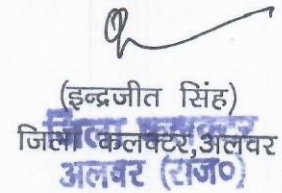 (इन्द्रजीत सिंह)
जिला कलक्टर,अलवर
जिला कलक्टर
अलवर (राज०)